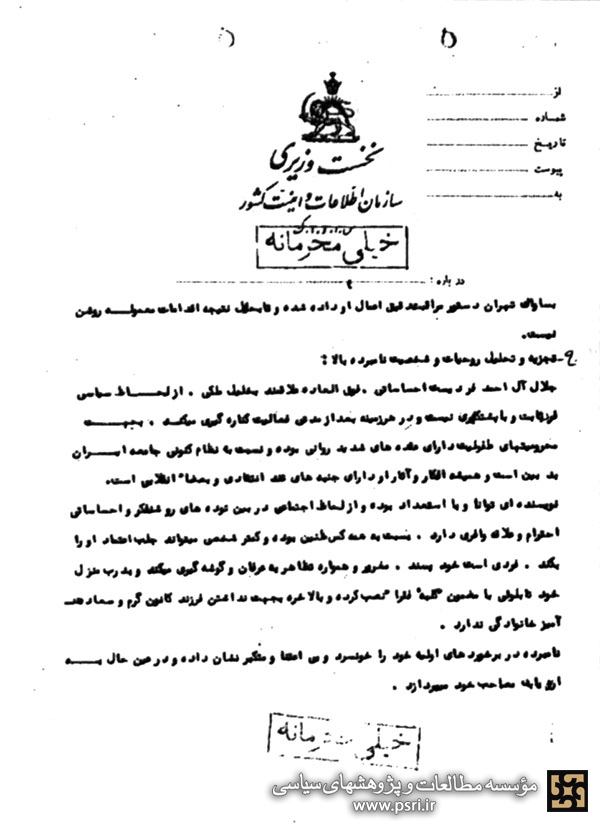 از
شماره
تاریخ
پیوست
به
نخست وزیری
سازمان اطلاعات و امنیت کشور
س.ا.و.ا.ک
خیلی محرمانه
درباره :
بساواك تهران دستور مراقبت دقیق اعمال او داده شده و تابحال نتیجه اقدامات معموله روشن
نیست.
۹- تجزیه و تحلیل روحیات و شخصیت نامبرده بالا :
جلال آل احمد فردیست احساساتی . فوق العاده علاقمند بتحلیل . از لحاظ سیاسی
فرد ثابت و با پشتکاری نیست و در هر زمینه بعد از مدتی فعالیت کناره گیری میکند . بجهت
محرومیتهای طفولیت دارای عقده های شدید روانی بوده و نسبت به نظام کنونی جامعه ایران
بد بین است و همیشه افکار و آثار او دارای جنبه های تند انتقادی و بعضا" انقلابی است.
نویسنده ای توانا و با استعداد بوده و از لحاظ اجتماعی در بین توده های روشنفکر و احساساتی
احترام و علاقه وافری دارد . نسبت به همه کس ظنین بوده و کمتر شخصی میتواند جلب اعتماد او را
بکند . فردی است خود پسند . مغرور و همواره تظاهر به عرفان و گوشه گیری میکند و بدرب منزل
خود تابلوئی با مضمون "کلبه" فقرا نصب کرده و بالاخره بجهت نداشتن فرزند کانون گرم و سعادت
آمیز خانوادگی ندارد .
نامبرده در برخورد های اولیه خود را خونسرد و بی اعتنا و متکبر نشان داده و در عین حال به
ارزیابی مصاحب خود میپردازد .
خیلی محرمانه
مؤسسه مطالعات و پژوهشهای سیاسی
www.psri.ir